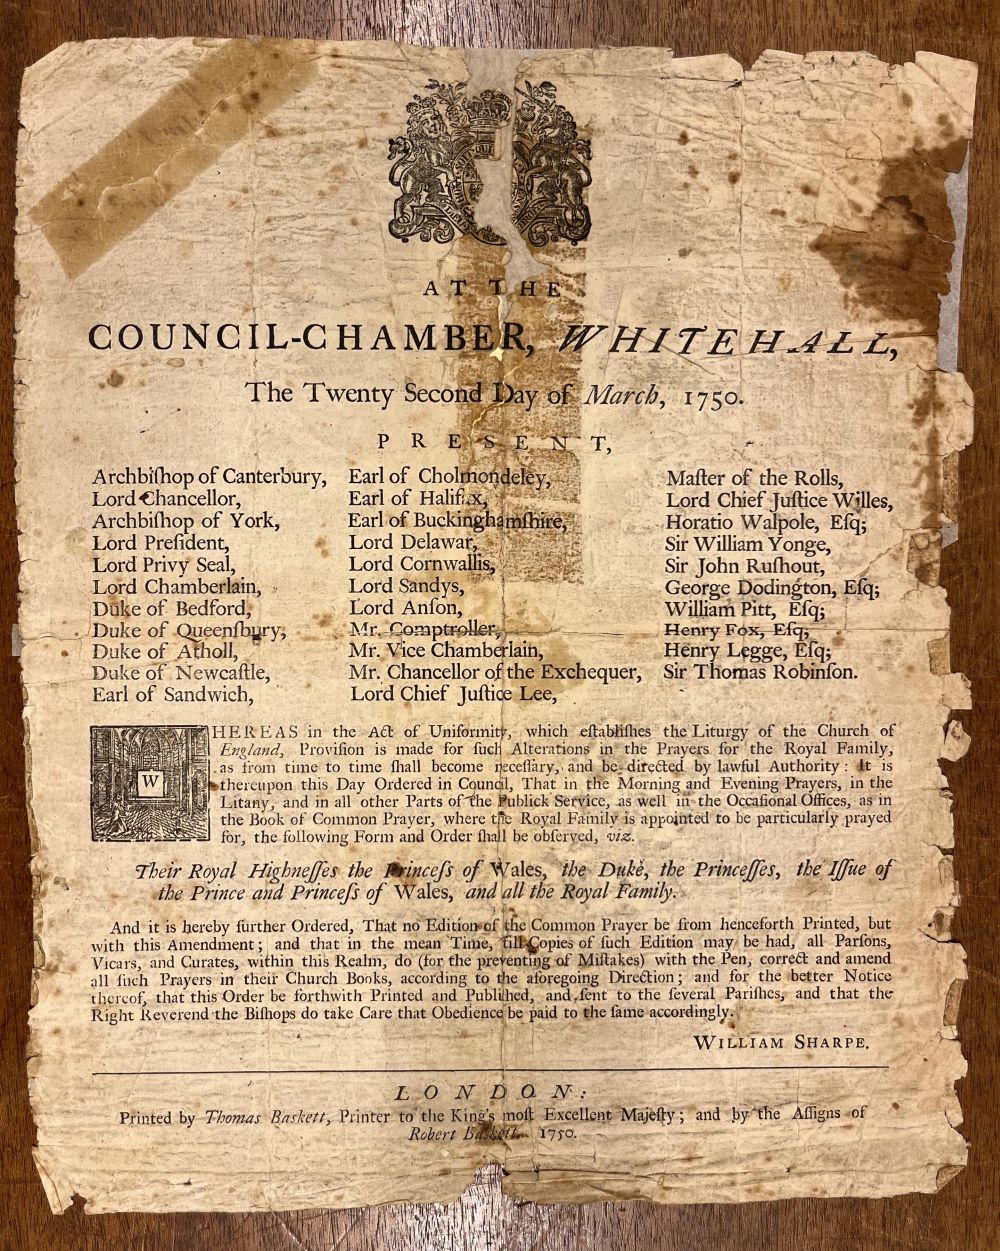 AT THE
COUNCIL-CHAMBER, WHITEHALL,
The Twenty Second Day of March, 1750.
PRESENT,
Archbiſhop of Canterbury,
Lord Chancellor,
Archbiſhop of York,
Lord Preſident,
Lord Privy Seal,
Lord Chamberlain,
Duke of Bedford,
Duke of Queenſbury,
Duke of Atholl,
Duke of Newcaſtle,
Earl of Sandwich,
Earl of Cholmondeley,
Earl of Halifax,
Earl of Buckinghamſhire,
Lord Delawar,
Lord Cornwallis,
Lord Sandys,
Lord Anſon,
Mr. Comptroller,
Mr. Vice Chamberlain,
Mr. Chancellor of the Exchequer,
Lord Chief Juſtice Lee,
Maſter of the Rolls,
Lord Chief Juſtice Willes,
Horatio Walpole, Eſq;
Sir William Yonge,
Sir John Ruſhout,
George Dodington, Eſq;
William Pitt, Eſq;
Henry Fox, Eſq;
Henry Legge, Eſq;
Sir Thomas Robinſon.
WHEREAS in the Act of Uniformity, which eſtabliſhes the Liturgy of the Church of
England, Proviſion is made for ſuch Alterations in the Prayers for the Royal Family,
as from time to time ſhall become neceſſary, and be directed by lawful Authority: It is
thereupon this Day Ordered in Council, That in the Morning and Evening Prayers, in the
Litany, and in all other Parts of the Publick Service, as well in the Occaſional Offices, as in
the Book of Common Prayer, where the Royal Family is appointed to be particularly prayed
for, the following Form and Order ſhall be obſerved, viz.
Their Royal Highneſſes the Princeſs of Wales, the Duke, the Princeſſes, the Iſſue of
the Prince and Princeſs of Wales, and all the Royal Family.
And it is hereby further Ordered, That no Edition of the Common Prayer be from henceforth Printed, but
with this Amendment; and that in the mean Time, till Copies of ſuch Edition may be had, all Parſons,
Vicars, and Curates, within this Realm, do (for the preventing of Miſtakes) with the Pen, correct and amend
all ſuch Prayers in their Church Books, according to the aforegoing Direction; and for the better Notice
thereof, that this Order be forthwith Printed and Publiſhed, and ſent to the ſeveral Pariſhes, and that the
Right Reverend the Biſhops do take Care that Obedience be paid to the ſame accordingly.
WILLIAM SHARPE.
LONDON:
Printed by Thomas Baskett, Printer to the King's moſt Excellent Majeſty; and by the Aſſigns of
Robert Baskett. 1750.